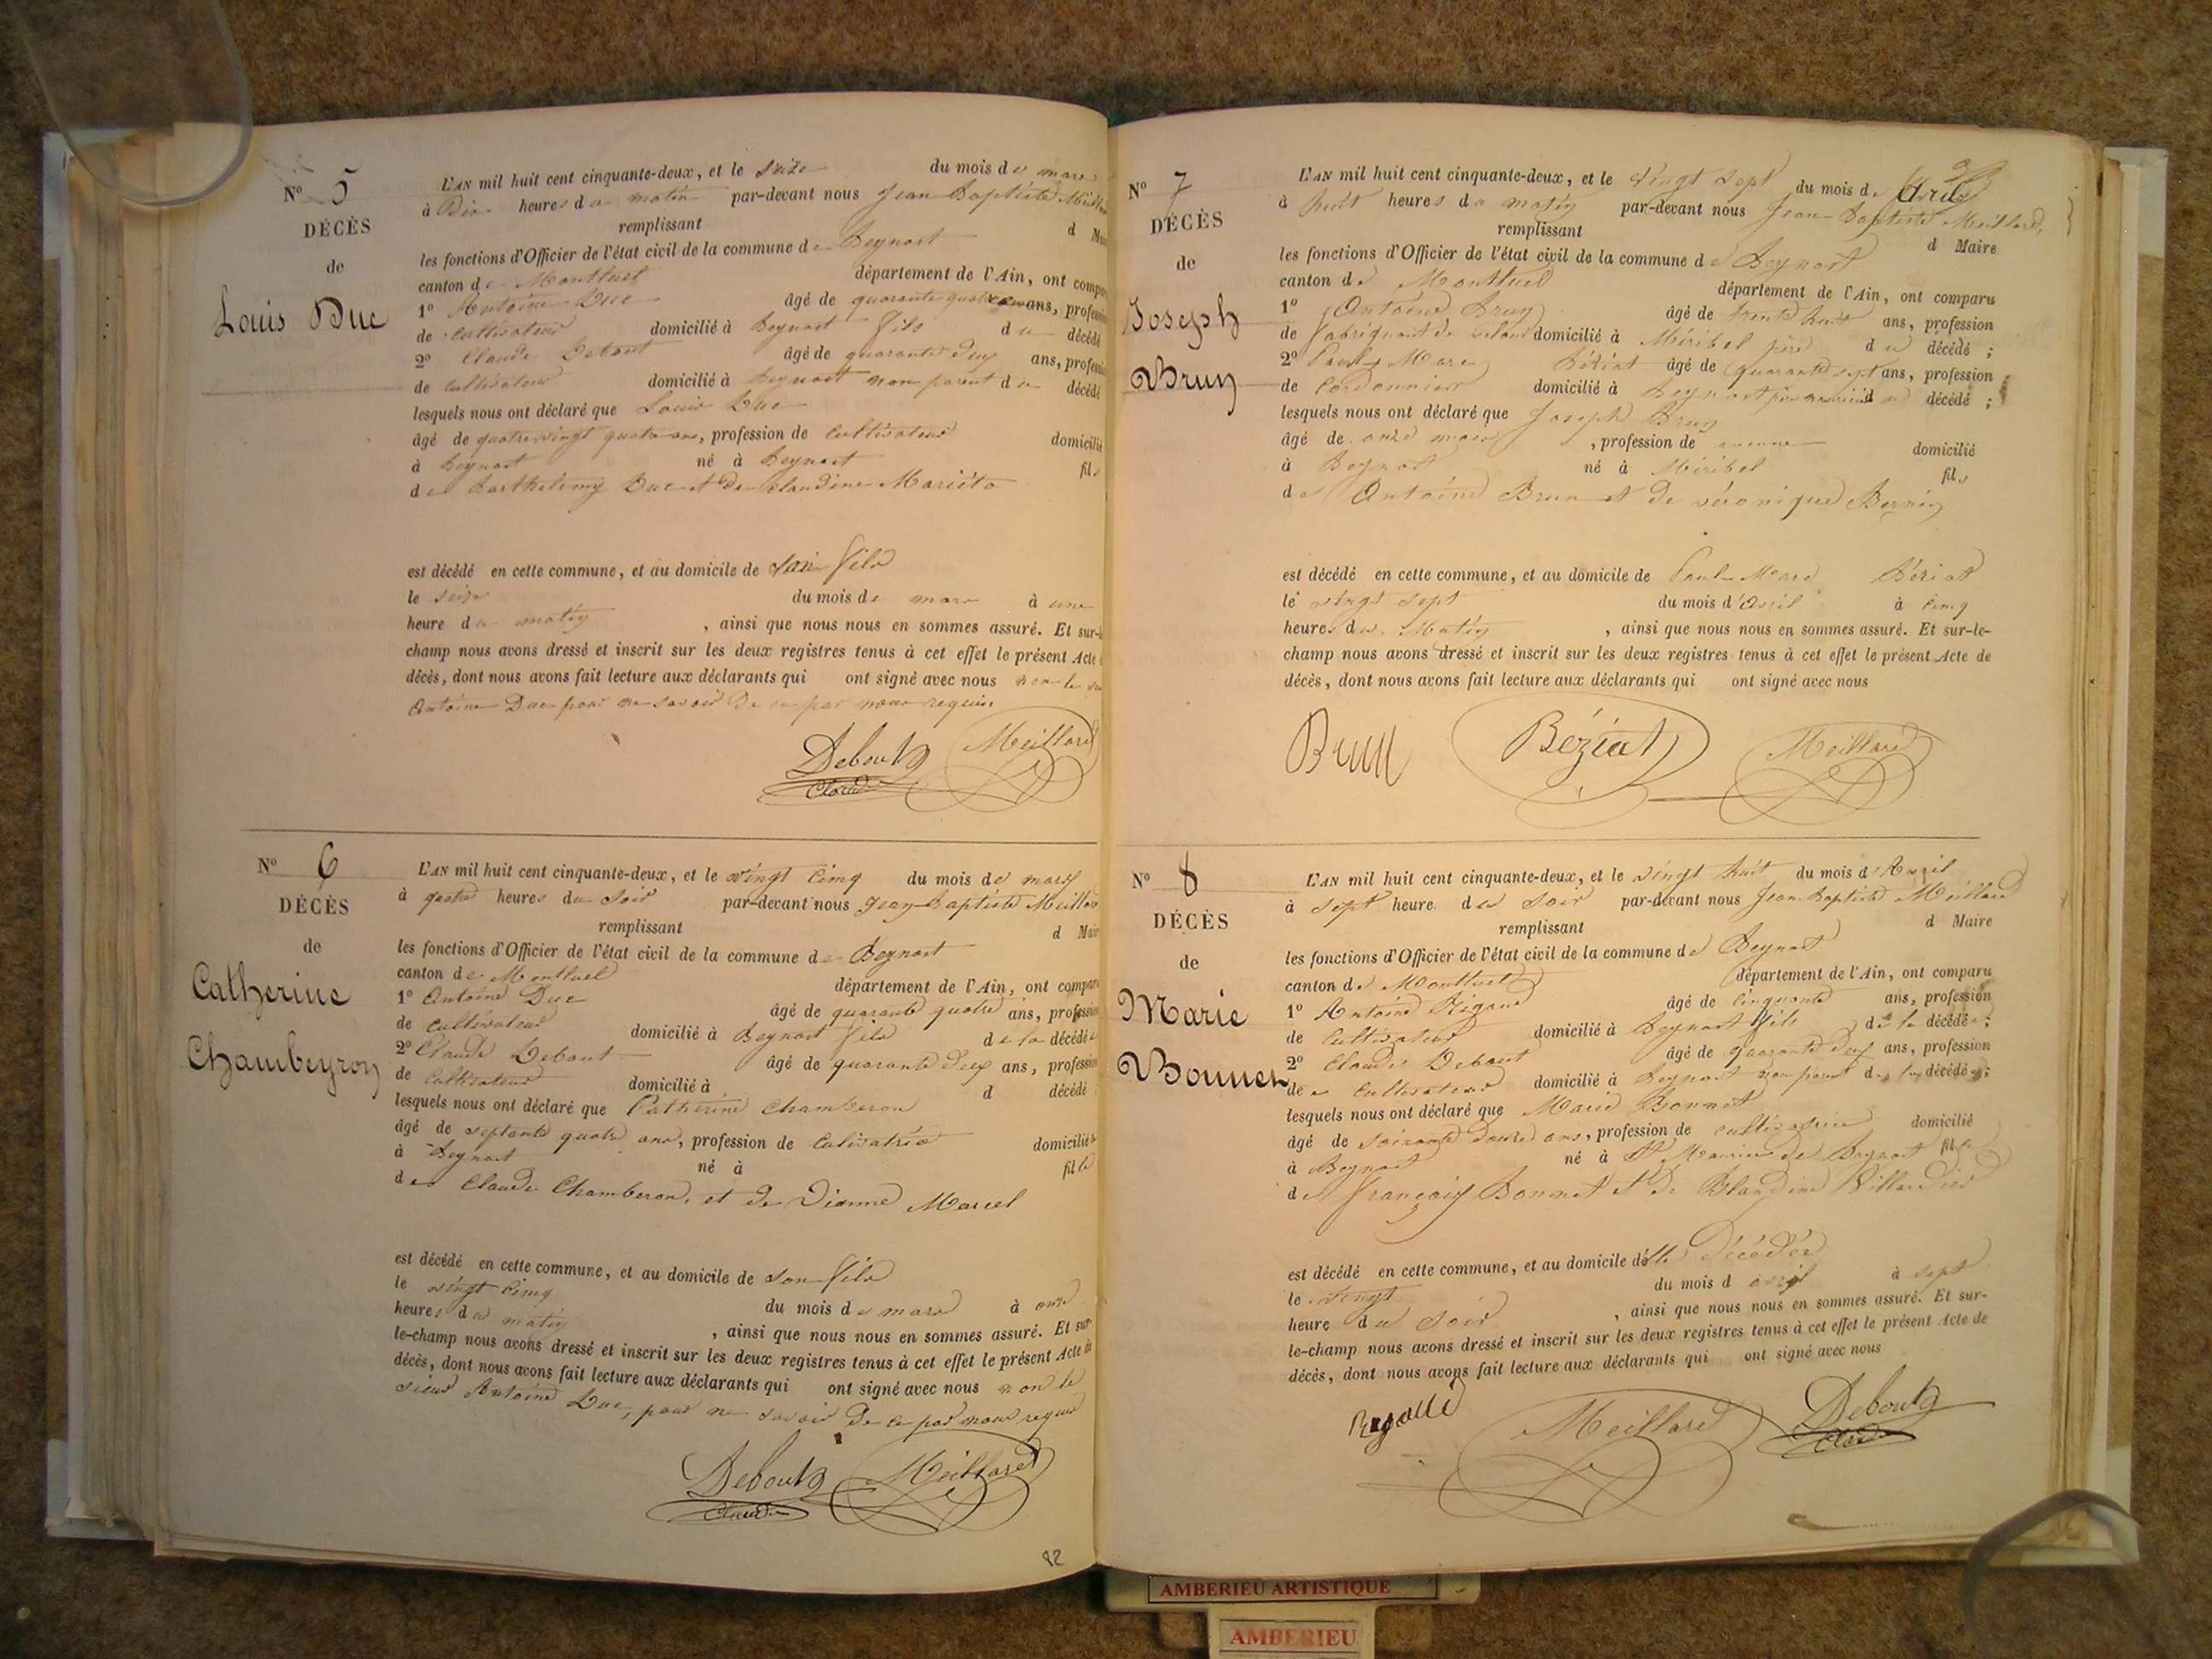 N° 5
DÉCÈS
de
Louis Duc
L'AN mil huit cent cinquante-deux, et le seize du mois de mars
à Dix heures du matin par-devant nous Jean Baptiste Meillard
remplissant
les fonctions d'Officier de l'état civil de la commune de Beynost
canton de Montluel département de l'Ain, ont comparu
1° Antoine Duc âgé de quarante quatre ans, profession
de cultivateur domicilié à Beynost fils du décédé
2° Claude Debout âgé de quarante deux ans, profession
de cultivateur domicilié à Beynost non parent du décédé
lesquels nous ont déclaré que Louis Duc
âgé de quatre vingt quatre ans, profession de cultivateur domicilié
à Beynost né à Beynost fils
de Barthelemy Duc et de Claudine Mariéta
est décédé en cette commune, et au domicile de son fils
le seize du mois de mars à une
heure du matin , ainsi que nous nous en sommes assuré. Et sur-le-
champ nous avons dressé et inscrit sur les deux registres tenus à cet effet le présent Acte
décès, dont nous avons fait lecture aux déclarants qui ont signé avec nous non le
Antoine Duc pour ne savoir de ce par nous requis
Debout Meillard
Claude
N° 6
DÉCÈS
de
Catherine
Chambeyron
L'AN mil huit cent cinquante-deux, et le vingt cinq du mois de mars
à quatre heures du soir par-devant nous Jean Baptiste Meillard
remplissant d Maire
les fonctions d'Officier de l'état civil de la commune de Beynost
canton de Montluel département de l'Ain, ont comparu
1° Antoine Duc âgé de quarante quatre ans, profession
de cultivateur domicilié à Beynost fils de la décédée
2° Claude Debout âgé de quarante deux ans, profession
de cultivateur domicilié à d décédé
lesquels nous ont déclaré que Catherine Chamberon
âgé de septante quatre ans, profession de cultivatrice domiciliée
à Beynost né à fille
de Claude Chamberon, et de Dianne Marcel
est décédé en cette commune, et au domicile de son fils
le vingt cinq du mois de mars à onze
heures du matin , ainsi que nous nous en sommes assuré. Et sur-
le-champ nous avons dressé et inscrit sur les deux registres tenus à cet effet le présent Acte de
décès, dont nous avons fait lecture aux déclarants qui ont signé avec nous non le
sieur Antoine Duc, pour ne savoir de ce par nous requis
Debout Meillard
Claude
82
N° 7
DÉCÈS
de
Joseph
Brun
L'AN mil huit cent cinquante-deux, et le vingt sept du mois d Avril
à huit heures du matin par-devant nous Jean-Baptiste Meillard,
remplissant d Maire
les fonctions d'Officier de l'état civil de la commune de Beynost
canton de Montluel département de l'Ain, ont comparu
1° Antoine Brun âgé de trente huit ans, profession
de fabriquant de domicilié à Miribel père du décédé ;
2° Paul Marc Béziat âgé de quarante sept ans, profession
de Cordonnier domicilié à Beynost père nourricier du décédé ;
lesquels nous ont déclaré que Joseph Brun
âgé de onze mois , profession de aucune domicilié
à Beynost né à Miribel fils
de Antoine Brun et de véronique Bernin
est décédé en cette commune, et au domicile de Paul Marc Béziat
le vingt sept du mois d'Avril à cinq
heures du Matin , ainsi que nous nous en sommes assuré. Et sur-le-
champ nous avons dressé et inscrit sur les deux registres tenus à cet effet le présent Acte de
décès, dont nous avons fait lecture aux déclarants qui ont signé avec nous
Brun Béziat Meillard
N° 8
DÉCÈS
de
Marie
Bonnet
L'AN mil huit cent cinquante-deux, et le vingt huit du mois d'Avril
à sept heure du soir par-devant nous Jean Baptiste Meillard
remplissant d Maire
les fonctions d'Officier de l'état civil de la commune de Beynost
canton de Montluel département de l'Ain, ont comparu
1° Antoine Rigaud âgé de cinquante ans, profession
de Cultivateur domicilié à Beynost fils de la décédée ;
2° Claude Debout âgé de quarante deux ans, profession
de cultivateur domicilié à Beynost non parent de la décédée ;
lesquels nous ont déclaré que Marie Bonnet
âgé de soixante douze ans, profession de cultivatrice domicilié
à Beynost né à St Maurice de Beynost fille
de François Bonnet et de Blandine
est décédé en cette commune, et au domicile de la Décédée
le vingt du mois d avril à sept
heure du soir , ainsi que nous nous en sommes assuré. Et sur-
le-champ nous avons dressé et inscrit sur les deux registres tenus à cet effet le présent Acte de
décès, dont nous avons fait lecture aux déclarants qui ont signé avec nous
Meillard Debout
Claude
AMBERIEU ARTISTIQUE
AMBERIEU